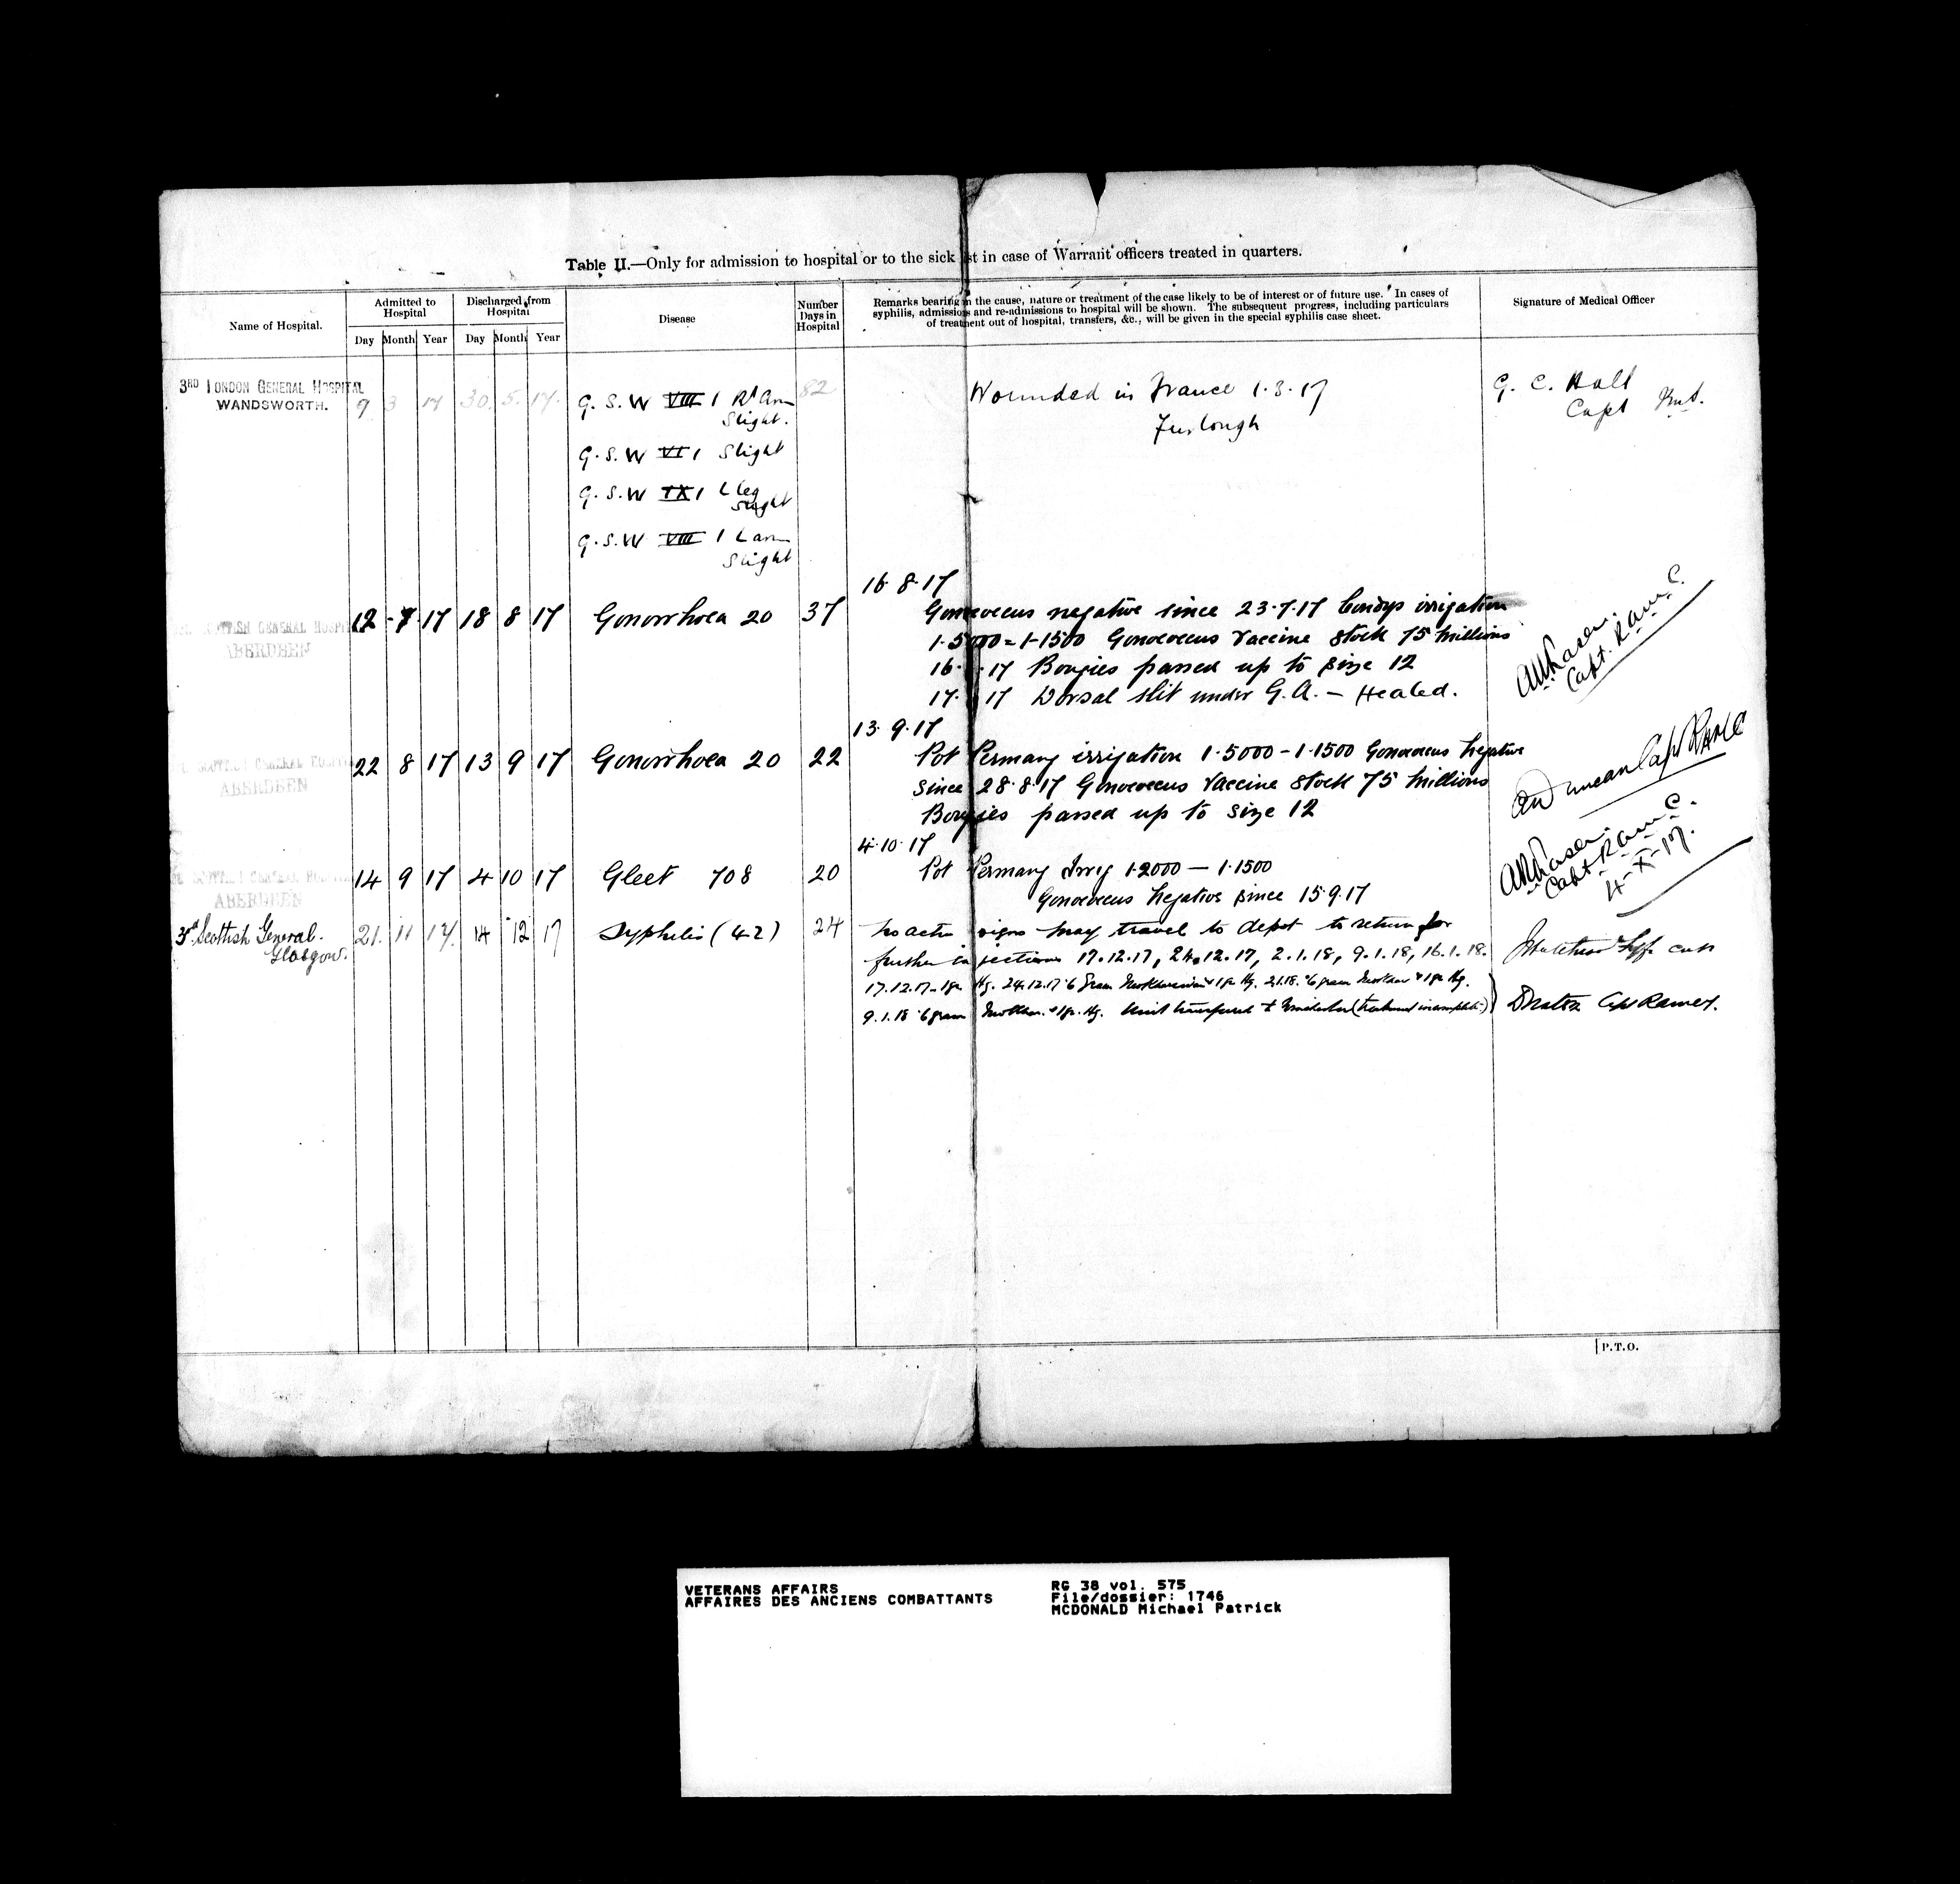 Table II.—Only for admission to hospital or to the sick list in case of Warrant officers treated in quarters.
Name of Hospital.
Admitted to Hospital
Discharged from Hospital
Disease
Number Days in Hospital
Remarks bearing on the cause, nature or treatment of the case likely to be of interest or of future use. In cases of
syphilis, admissions and re-admissions to hospital will be shown. The subsequent progress, including particulars
of treatment out of hospital, transfers, &c., will be given in the special syphilis case sheet.
Signature of Medical Officer
Day Month Year Day Month Year
3RD LONDON GENERAL HOSPITAL
WANDSWORTH.
9 3 17 30. 5. 17.
G. S. W VIII 1 Rt Arm
Slight.
82
Wounded in France 1.3.17
Furlough
G. C. Hall
Capt
G. S. W VI 1 Slight
G. S. W IX 1 L leg
Slight
G. S. W VIII 1 L arm
Slight
16.8.17
SCOTTISH GENERAL HOSPITAL
ABERDEEN
12 -7 17 18 8 17 Gonorrhoea 20 37
Gonococcus negative since 23.7.17 Condys irrigation
1.5000 = 1-1500 Gonococcus Vaccine Stock 75 millions
16. .17 Bougies passed up to size 12
17. 17 Dorsal slit under G.A. — Healed.
Capt. R.a.m.C.
13.9.17
SCOTTISH GENERAL HOSPITAL
ABERDEEN
22 8 17 13 9 17 Gonorrhoea 20 22
Pot Permang irrigation 1.5000 - 1.1500 Gonococcus negative
since 28.8.17 Gonococcus Vaccine Stock 75 millions
Bougies passed up to size 12
Duncan Capt RAMC
4.10.17
SCOTTISH GENERAL HOSPITAL
ABERDEEN
14 9 17 4 10 17 Gleet 708 20
Pot Permang Irrig 1.2000 — 1.1500
Gonococcus negative since 15.9.17
Capt R.a.m.C.
4-X-17.
3rd Scottish General.
Glasgow.
21. 11 17. 14 12 17 Syphilis (42) 24
no active signs may travel to depot to return for
further injections 17.12.17, 24.12.17, 2.1.18, 9.1.18, 16.1.18.
17.12.17 - 1gr. Hg. 24.12.17 .6 gram + 1gr Hg. 2.1.18. .6 gram + 1gr Hg.
9.1.18 .6 gram + 1gr. Hg. Unit transferred to (treatment incomplete)
P.T.O.
VETERANS AFFAIRS
AFFAIRES DES ANCIENS COMBATTANTS
RG 38 vol. 575
File/dossier: 1746
MCDONALD Michael Patrick